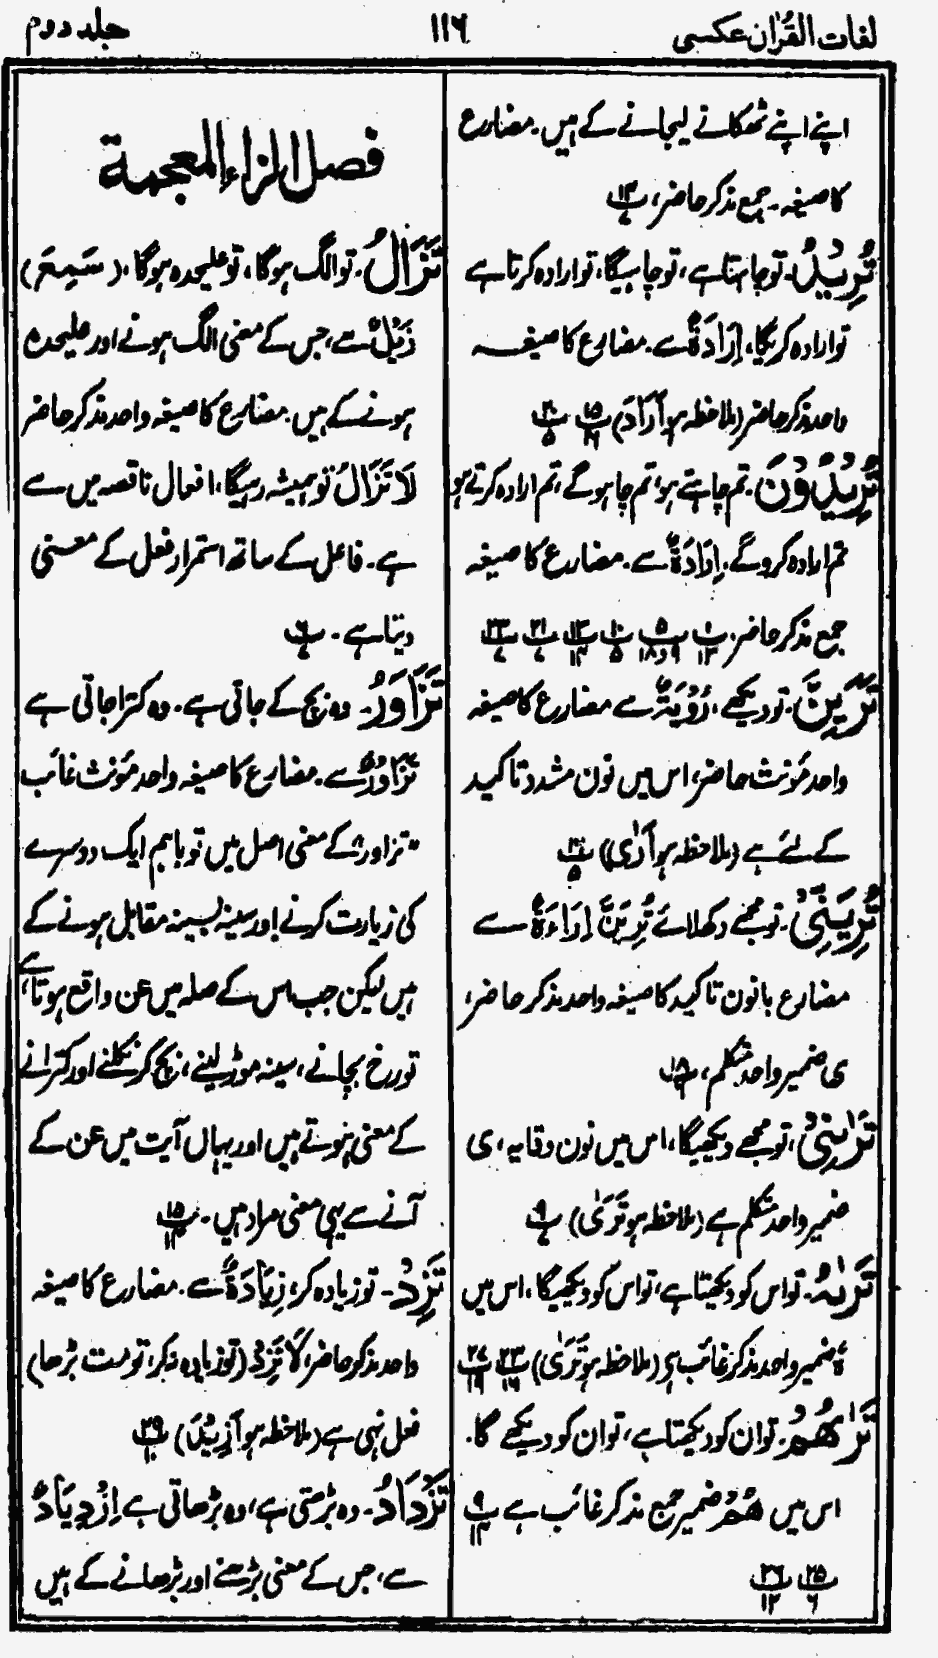 لغات القرآن عکسی
۱۱۶
جلد دوم
اپنے اپنے ٹھکانے لیجانے کے ہیں۔ مضارع
کا صیغہ۔ جمع مذکر حاضر، پ۱۴
تُرِیدُ۔ تو چاہتا ہے، تو چاہیگا، تو ارادہ کرتا ہے
تو ارادہ کریگا، اِرَادَةٌ سے۔ مضارع کا صیغہ
واحد مذکر حاضر (ملاحظہ ہو اَرَادَ) پ۱۵ پ۲۰
تُرِیدُوْنَ۔ تم چاہتے ہو، تم چاہو گے، تم ارادہ کرتے ہو
تم ارادہ کرو گے۔ اِرَادَةٌ سے۔ مضارع کا صیغہ
جمع مذکر حاضر۔
تَرَیِنَّ۔ تو دیکھے، رُؤْیَةٌ سے مضارع کا صیغہ
واحد مؤنث حاضر، اس میں نون مشدد تاکید
کے لئے ہے (ملاحظہ ہو اَرٰی)
تُرِیَنِّیْ۔ تو مجھے دکھلائے تُرِیَنَّ اِرَاءَةٌ سے
مضارع بانون تاکید کا صیغہ واحد مذکر حاضر،
ی ضمیر واحد متکلم، پ۱۸
تَرٰىنِیْ، تو مجھے دیکھیگا، اس میں نون وقایہ، ی
ضمیر واحد متکلم ہے (ملاحظہ ہو تَرٰی) پ۹
تَرٰىهُ۔ تو اس کو دیکھتا ہے، تو اس کو دیکھیگا، اس میں
ہٗ ضمیر واحد مذکر غائب ہے (ملاحظہ ہو تَرٰی) پ۲۳ پ۲۷
تَرٰىهُمْ۔ تو ان کو دیکھتا ہے، تو ان کو دیکھے گا۔
اس میں هُمْ ضمیر جمع مذکر غائب ہے پ۹
پ۲۵ پ۲۶
فصل الزاء المعجمة
تَزَالُ۔ تو الگ ہوگا، تو علیحدہ ہوگا، (سَمِعَ)
زَیْلٌ سے، جس کے معنی الگ ہونے اور علیحدہ
ہونے کے ہیں۔ مضارع کا صیغہ واحد مذکر حاضر
لَا تَزَالُ تو ہمیشہ رہیگا، افعال ناقصہ میں سے
ہے۔ فاعل کے ساتھ استمرار فعل کے معنی
دیتا ہے۔ پ۶
تَزَاوَرُ۔ وہ بچ کے جاتی ہے۔ وہ کترا جاتی ہے
تَزَاوُرٌ سے۔ مضارع کا صیغہ واحد مؤنث غائب
"تزاور" کے معنی اصل میں تو باہم ایک دوسرے
کی زیارت کرنے اور سینہ بسینہ مقابل ہونے کے
ہیں لیکن جب اس کے صلہ میں عن واقع ہوتا ہے،
تو رخ بچانے، سینہ موڑ لینے، بچ کر نکلنے اور کترانے
کے معنی ہوتے ہیں اور یہاں آیت میں عن کے
آنے سے یہی معنی مراد ہیں۔ پ۱۵
تَزِدْ۔ تو زیادہ کر، زِیَادَةٌ سے۔ مضارع کا صیغہ
واحد مذکر حاضر، لَا تَزِدْ (تو زیادہ نہ کر، تو مت بڑھا)
فعل نہی ہے (ملاحظہ ہو اَزِیْدَ) پ۲۹
تَزْدَادُ۔ وہ بڑھتی ہے، وہ بڑھاتی ہے اِزْدِیَادٌ
سے، جس کے معنی بڑھنے اور بڑھانے کے ہیں